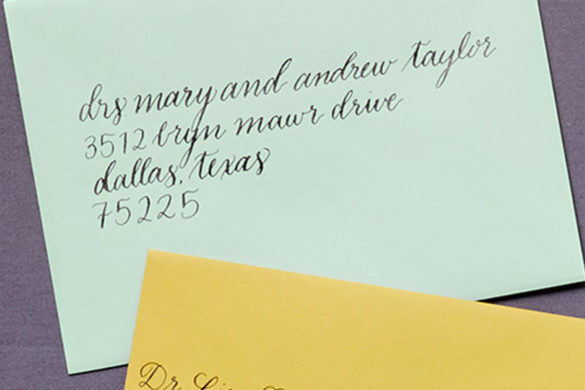 drs. mary and andrew taylor
3512 bryn mawr drive
dallas, texas
75225
Dr.